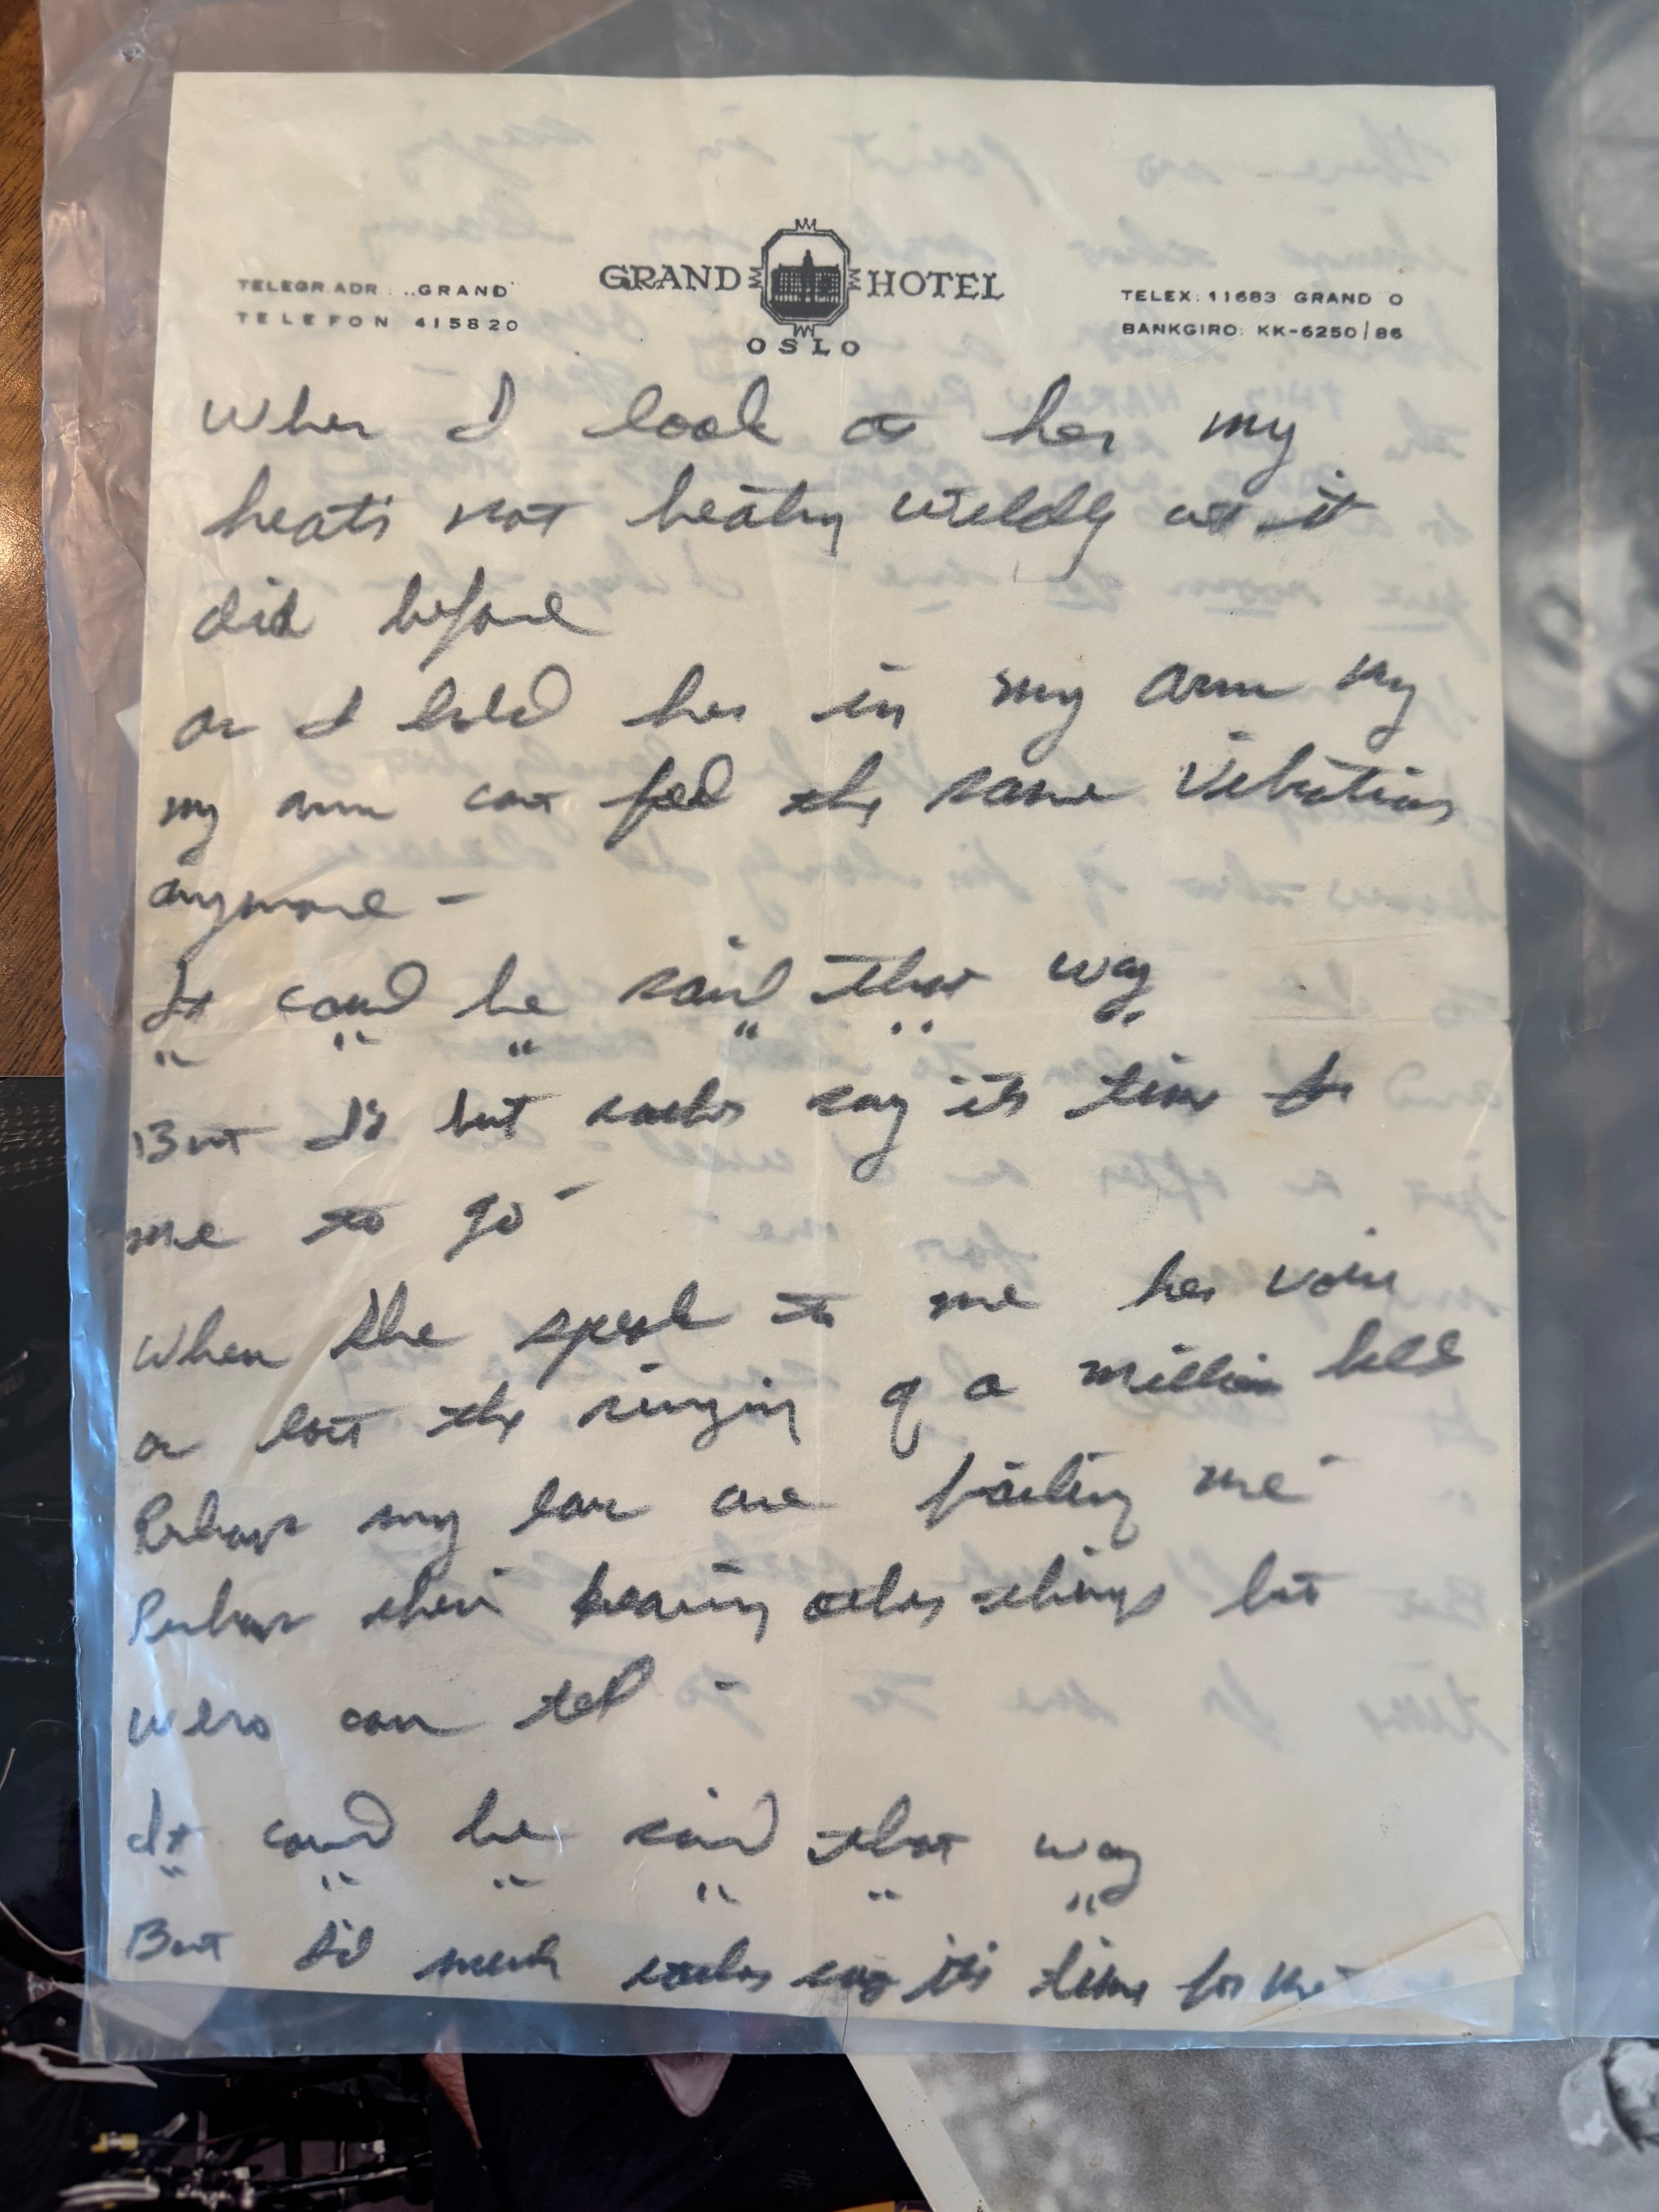 TELEGR.ADR.: "GRAND"
TELEFON 415820
GRAND HOTEL
OSLO
TELEX: 11683 GRAND O
BANKGIRO: KK-6250/86
When I look at her my
heats not beating wieldly as it
did before
or I hold her in my arm my
my arm cant feel the same vibrations
anymore -
It could be said that way
" " " " " "
But I'd but rather say its time for
me to go -
When she speak to me her voice
or lost the ringing of a million bell
Perhaps my ear are failing me -
Perhaps their hearing other things but
who can tell -
It could be said that way
" " " " " "
But I'd much rather say it's time for me -